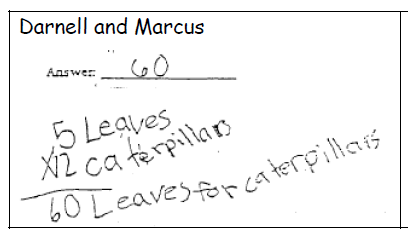 Darnell and Marcus
Answer: 60
5 Leaves
X12 caterpillars
60 Leaves for caterpillars